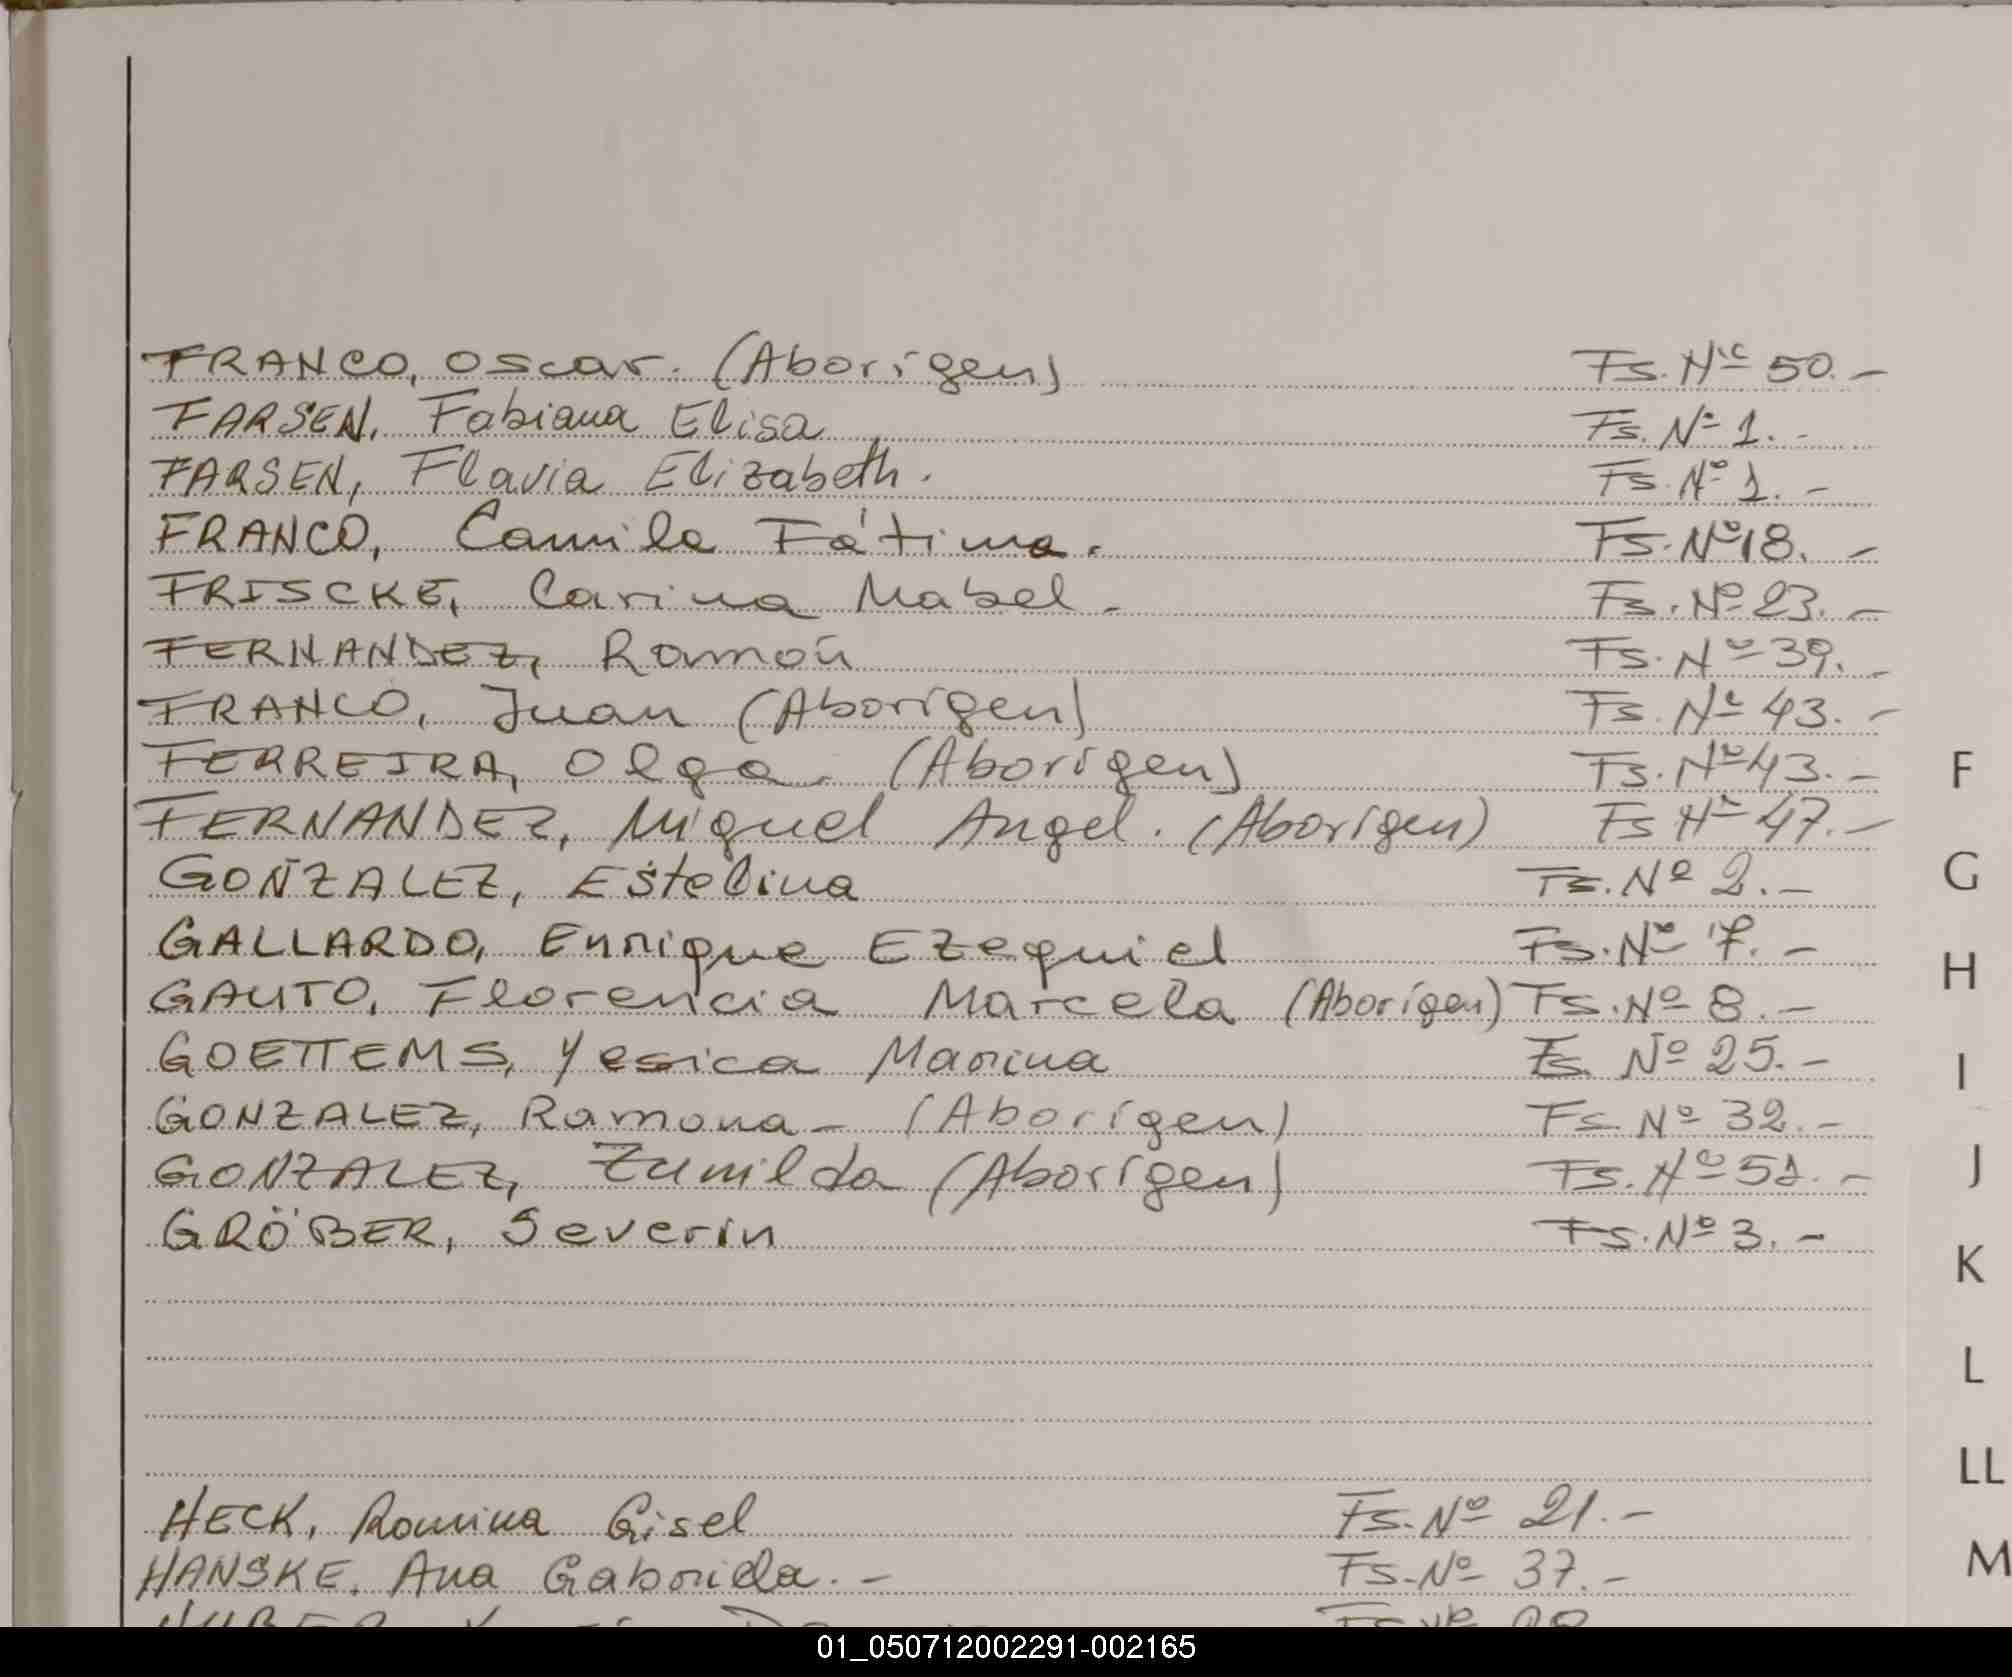 FRANCO, Oscar. (Aborigen) Fs. Nº 50.-
FARSEN, Fabiana Elisa Fs. Nº 1.-
FARSEN, Flavia Elizabeth. Fs. Nº 1.-
FRANCO, Camila Fátima. Fs. Nº 18.-
FRISCKE, Carina Mabel.- Fs. Nº 23.-
FERNANDEZ, Ramón Fs. Nº 39.-
FRANCO, Juan (Aborigen) Fs. Nº 43.-
FERREIRA, Olga. (Aborigen) Fs. Nº 43.-
F
FERNANDEZ, Miguel Angel. (Aborigen) Fs Nº 47.-
GONZALEZ, Estelina Fs. Nº 2.-
G
GALLARDO, Enrique Ezequiel Fs. Nº 7.-
H
GAUTO, Florencia Marcela (Aborigen) Fs. Nº 8.-
GOETTEMS, Yesica Marina Fs. Nº 25.-
I
GONZALEZ, Ramona - (Aborigen) Fs. Nº 32.-
GONZALEZ, Zunilda (Aborigen) Fs. Nº 51.-
J
GRÖBER, Severin Fs. Nº 3.-
K
L
LL
HECK, Romina Gisel Fs. Nº 21.-
HANSKE, Ana Gabriela.- Fs. Nº 37.-
M
01_050712002291-002165